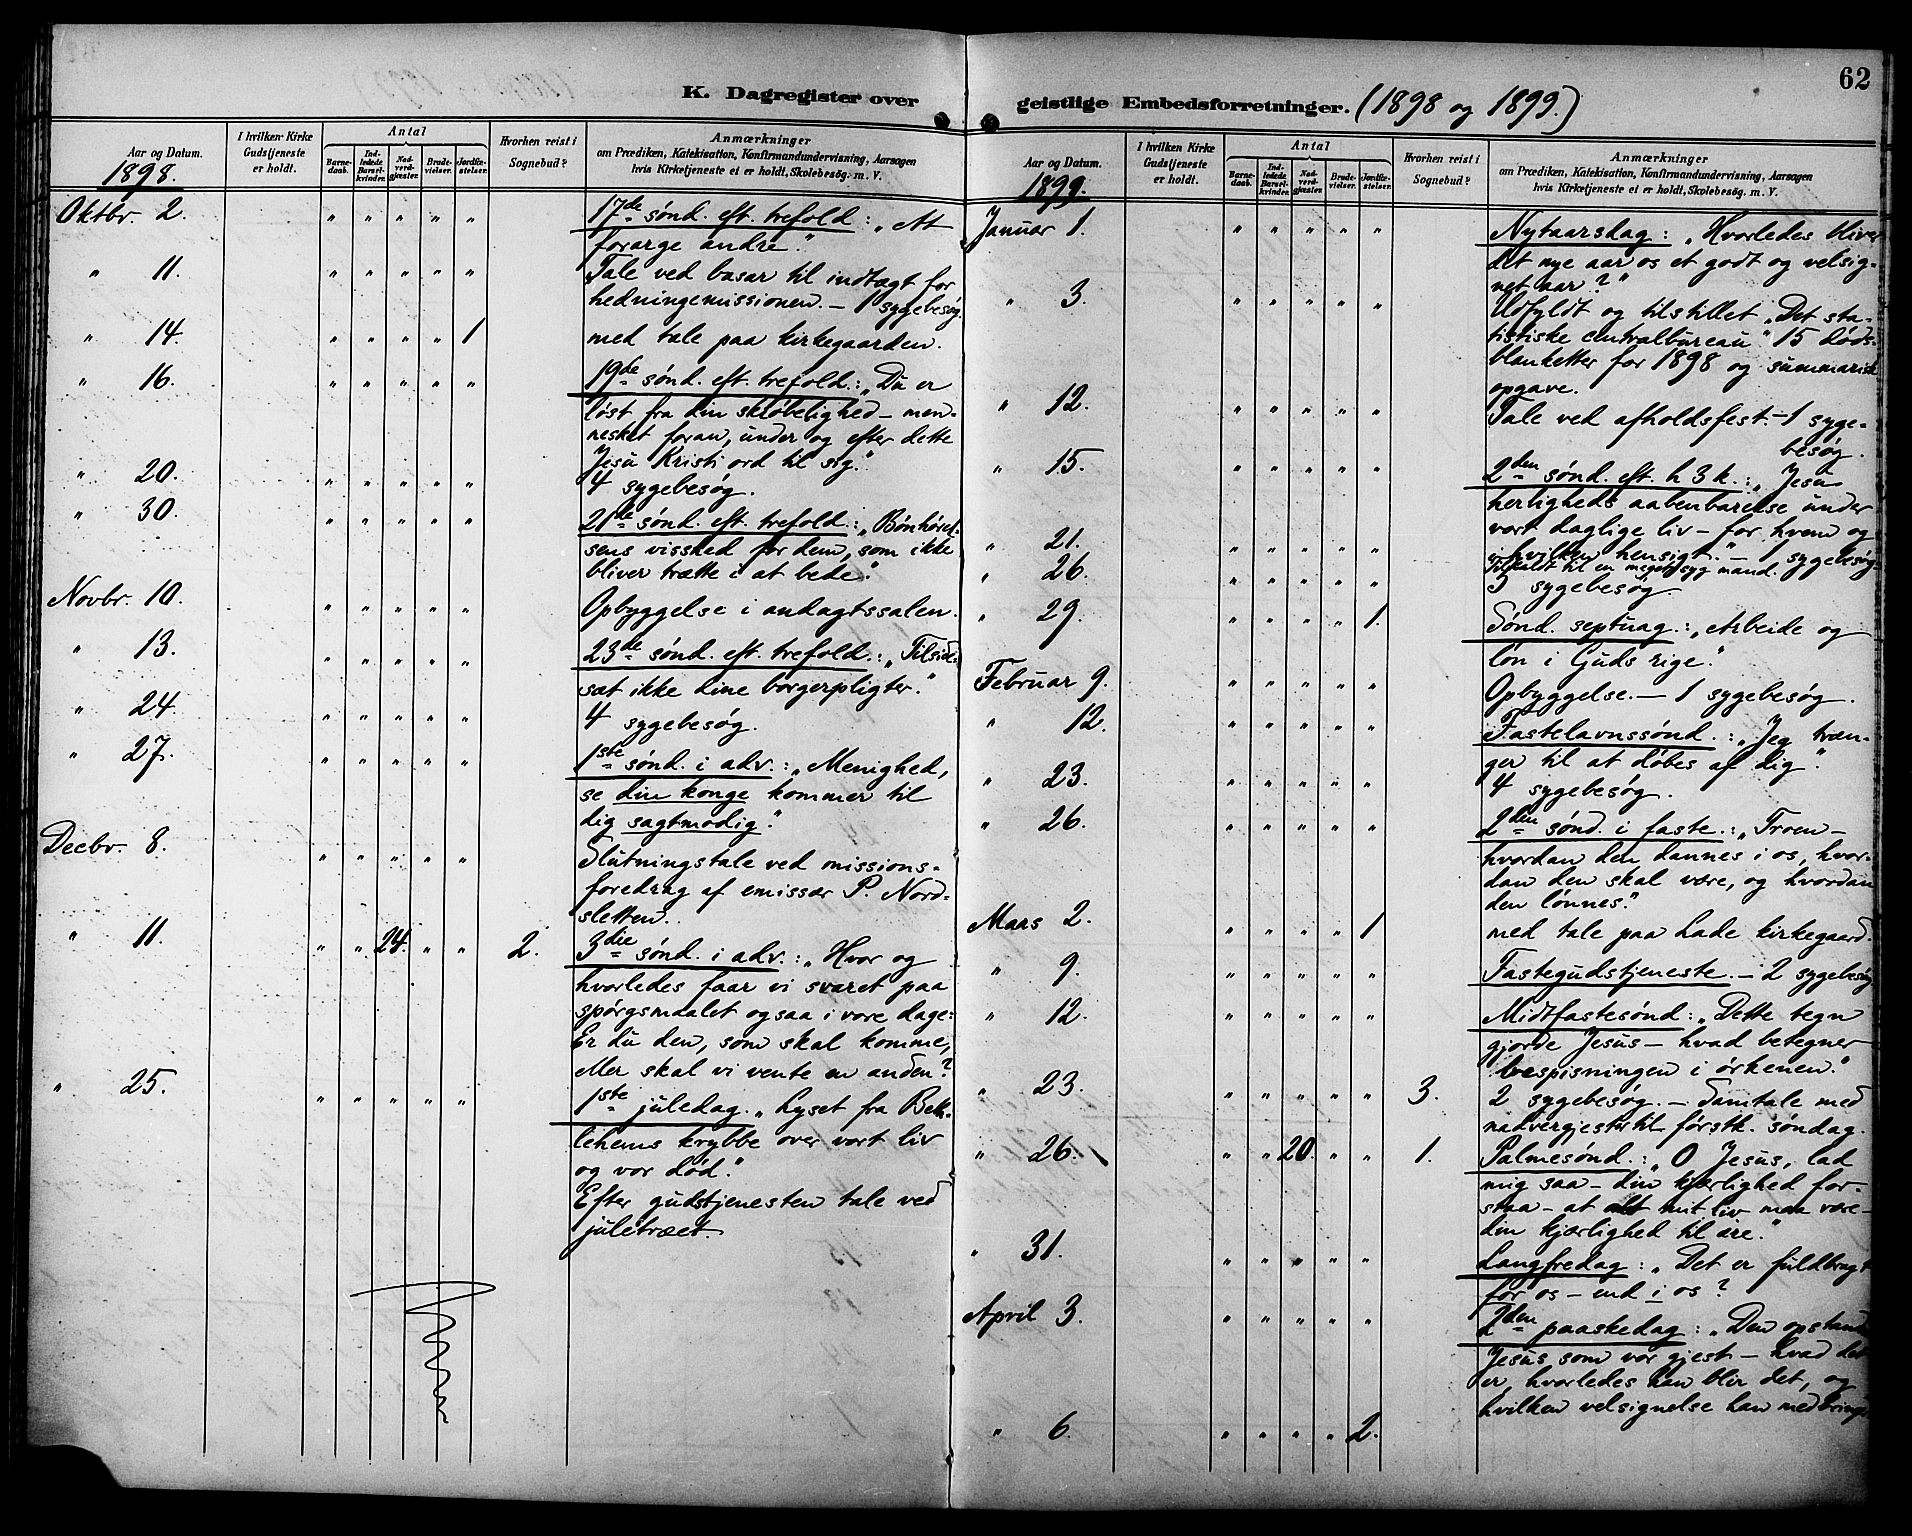 K. Dagregister over
Aar og Datum.
I hvilken Kirke Gudstjeneste er holdt.
Antal
Barnedaab.
Indledede Barselkvinder.
Nadverdgjæster.
Brudevielser.
Jordfæstelser.
Hvorhen reist i Sognebud?
Anmærkninger
om Prædiken, Katekisation, Konfirmandundervisning, Aarsagen
hvis Kirketjeneste ei er holdt, Skolebesøg. m. V.
1898.
Oktbr. 2. " " " " " 17de sønd. eft. trefold: „At
forarge andre."
" 11. " " " " " Tale ved basar til indtægt for
hedningemissionen. – 1 sygebesøg.
" 14. " " " " 1 med tale paa kirkegaarden.
" 16. " " " " " 19de sønd. eft. trefold.: „Du er
løst fra din skrøbelighed – men-
nesket foran, under og efter dette
Jesu Kristi ord til sig."
" 20. " " " " " 4 sygebesøg.
" 30. " " " " " 21de sønd. eft. trefold: „Bønhørel-
sens visshed for dem, som ikke
bliver trætte i at bede."
Novbr. 10. " " " " " Opbyggelse i andagtssalen.
" 13. " " " " " 23de sønd. eft. trefold.: „Tilsid-
sæt ikke dine borgerpligter."
" 24. " " " " " 4 sygebesøg.
" 27. " " " " " 1ste sønd. i adv.: „Menighed,
se din konge kommer til
dig sagtmodig."
Decbr. 8. " " " " " Slutningstale ved missions-
foredrag af emissær P. Nord-
sletten.
" 11. " " 24. " " 2. 3die sønd. i adv.: „Hvor og
hvorledes faar vi svaret paa
spørgsmaalet ogsaa i vore dage:
Er du den, som skal komme,
eller skal vi vente en anden?
" 25. " " " " " 1ste juledag. „Lyset fra Beth-
lehems krybbe over vort liv
og vor død."
Efter gudstjenesten tale ved
juletræet.
62
geistlige Embedsforretninger. (1898 og 1899.)
Aar og Datum.
I hvilken Kirke Gudstjeneste er holdt.
Antal
Barnedaab.
Indledede Barselkvinder.
Nadverdgjæster.
Brudevielser.
Jordfæstelser.
Hvorhen reist i Sognebud?
Anmærkninger
om Prædiken, Katekisation, Konfirmandundervisning, Aarsagen
hvis Kirketjeneste ei er holdt, Skolebesøg. m. V.
1899.
Januar 1. " " " " " Nytaarsdag: „Hvorledes bliver
det nye aar os et godt og velsig-
net aar?"
" 3. " " " " " Udfyldt og tilstillet „Det sta-
tistiske centralbureau" 15 døds-
blanketter for 1898 og summarisk
opgave.
" 12. " " " " " Tale ved afholdsfest. – 1 syge-
besøg.
" 15. " " " " " 2den sønd. eft. h 3 k.: „Jesu
herligheds aabenbarelse under
vort daglige liv – for hvem og
i hvilken hensigt." – 1 sygebesøg.
" 21. " " " " " Tilkaldt til en meget syg mand.
" 26. " " " " " 3 sygebesøg.
" 29. " " " " 1. Sønd. septuag.: „Arbeide og
løn i Guds rige."
Februar 9. " " " " " Opbyggelse. – 1 sygebesøg.
" 12. " " " " " Fastelavnssønd.: „Jeg træn-
ger til at døbes af dig".
" 23. " " " " " 4 sygebesøg.
" 26. " " " " " 2den sønd. i faste.: „Troen –
hvordan den dannes i os, hvor-
dan den skal være, og hvordan
den lønnes."
Mars 2. " " " " 1 med tale paa Lade kirkegaard.
" 9. " " " " " Fastegudstjeneste. – 2 sygebesøg
" 12. " " " " " Midtfastesønd: „Dette tegn
gjorde Jesus – hvad betegner
bespisningen i ørkenen."
" 23. " " " " " 3. 2 sygebesøg. – Samtale med
nadvergjester til førstk. søndag.
" 26. " " 20. " " 1. Palmesønd.: „O Jesus, lad
mig saa – din kjærlighed for-
staa – at alt mit liv maa være –
din kjærlighed til ære."
" 31. " " " " " Langfredag: „Det er fuldbragt
for os – end i os?
April 3. " " " " " 2den paaskedag: „Den opstandne
Jesus som vor gjest – hvad det
er, hvorledes han blir det, og
hvilken velsignelse han medbringer
" 6. " " " " 2.